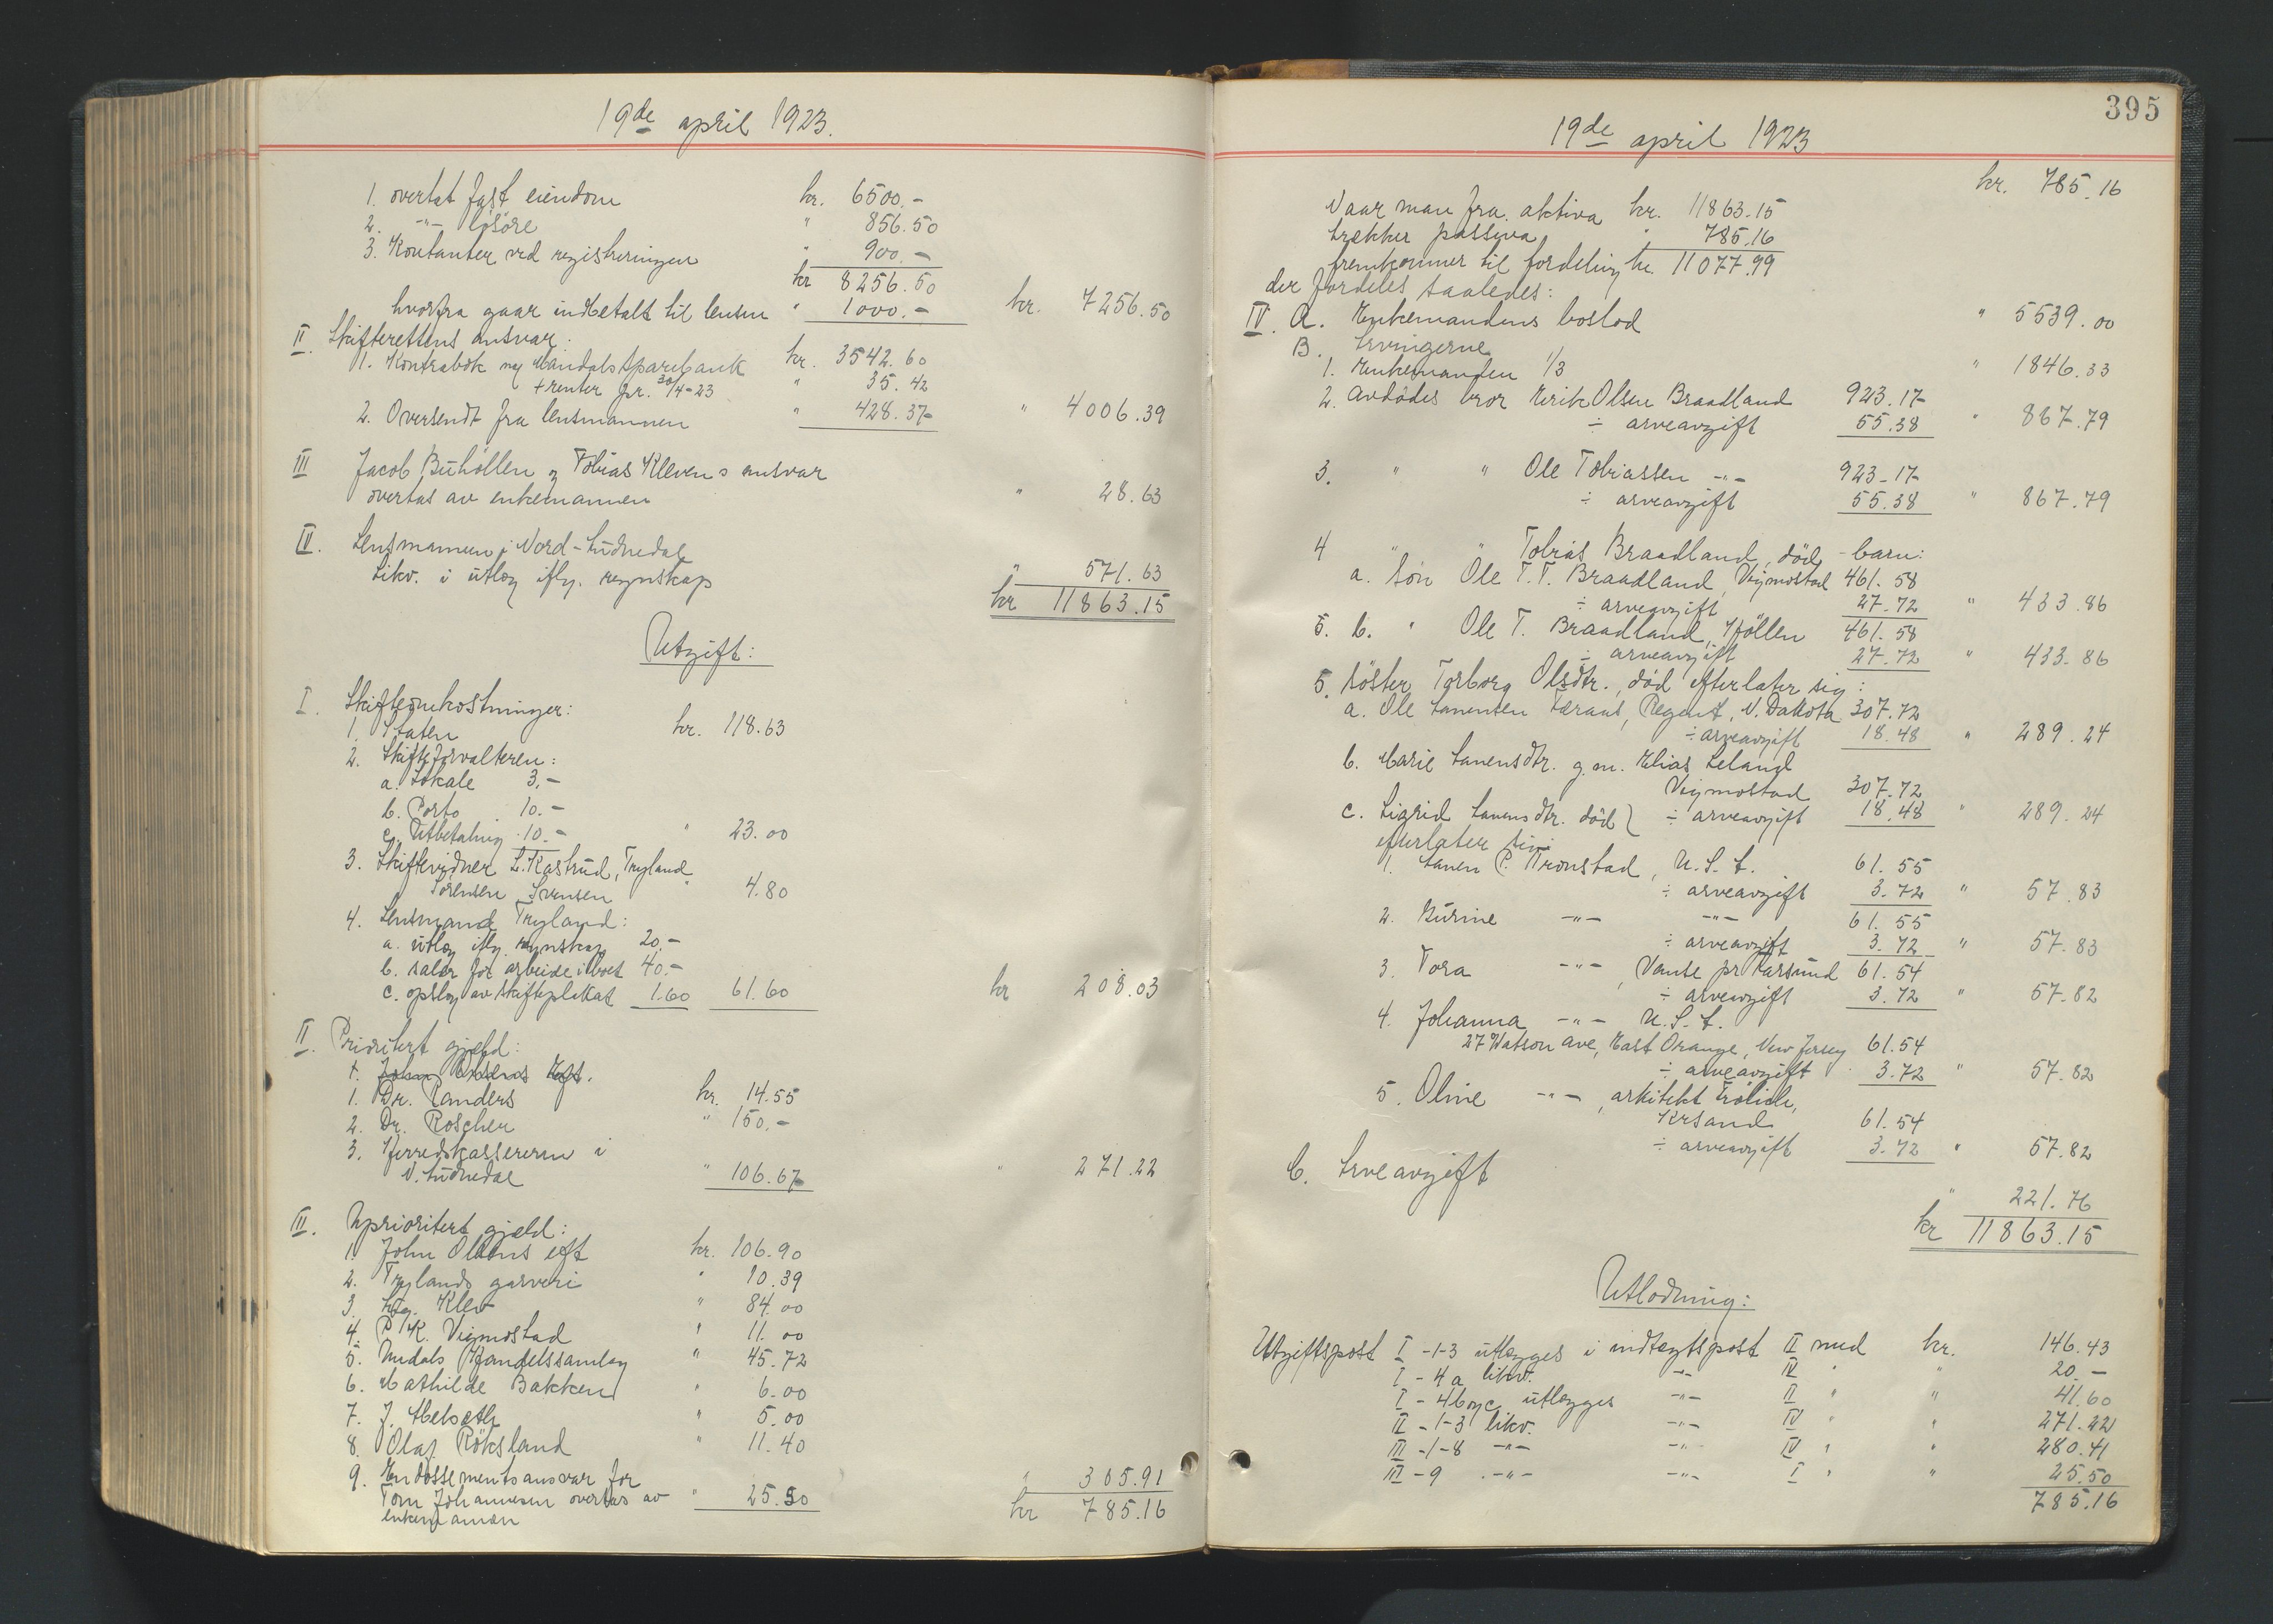 19de april 1923.
1. overtat fast eiendom kr. 6500.-
2. -"- løsøre " 856.50
3. Kontanter ved registreringen " 900.-
kr 8256.50
hvorfra gaar indbetalt til lensm " 1000.- kr. 7256.50
II Skifterettens ansvar:
1. Kontrabok nr Mandals Sparebank kr. 3542.60
+ renter pr. 30/4-23 " 35.42
2. Oversendt fra lensmannen " 428.37 " 4006.39
III Jacob Buhöllen og Tobias Klevens ansvar
overtas av enkemannen " 28.63
IV. Lensmannen i Nord-Audnedal
Likv. i utlæg iflg. regnskap " 571.63
kr 11863.15
Utgift:
I. Skifteomkostninger:
1. Staten kr. 118.63
2. Skifteforvalteren:
a. Lokale 3.-
b. Porto 10.-
c. Utbetaling 10.- " 23.00
3. Skiftevidner L. Kastrud, Trygland
Sørensen Svensen " 4.80
4. Lensmand Trygland:
a. utlæg iflg. regnskap 20.-
b. salær for arbeide i boet 40.-
c. opslag av skifteplakat 1.60 61.60 kr 208.03
II. Prioritert gjæld:
1. John Olsens Eft.
1. Dr. Randers kr. 14.55
2. Dr. Roscher " 150.-
3. Herredskassereren i
N. Audnedal " 106.67 " 271.22
III. Uprioritert gjæld:
1. John Olsens eft kr. 106.90
2. Tryglands garveri " 10.39
3. Klev " 84.00
4. P. K. Vigmostad " 11.00
5. Nedals Handelssamlag " 45.72
6. Mathilde Bakken " 6.00
7. J. " 5.00
8. Olaf Röksland " 11.40
9. Endossementsansvar for
Tom Johannesen overtas av " 25.50 " 305.91
enkemannen kr 785.16
395
19de april 1923
kr. 785.16
Naar man fra aktiva kr. 11863.15
trækker passiva " 785.16
fremkommer til fordeling kr. 11077.99
der fordeles saaledes:
IV. A. Enkemandens boslod " 5539.00
B. Arvingerne
1. Enkemanden 1/3 " 1846.33
2. avdödes bror Eerik Olsen Braadland 923.17
÷ arveavgift 55.38 " 867.79
3. " " Ole Tobiassen -"- 923.17
÷ arveavgift 55.38 " 867.79
4 " " Tobias Braadland, död - barn:
a. sön Ole T. T. Braadland, Vigmostad 461.58
÷ arveavgift 27.72 " 433.86
5. b. " Ole T. Braadland, Höllen 461.58
÷ arveavgift 27.72 " 433.86
5. söster Torborg Olsdtr., död efterlater sig:
a. Ole Lauensen Færaas, Regent, N. Dakota 307.72
÷ arveavgift 18.48 " 289.24
b. Marie Lauensdtr. g.m. Elias Leland
Vigmostad 307.72
c. Sigrid Lauensdtr. död ÷ arveavgift 18.48 " 289.24
efterlater sig:
1. Lauen P. Tronstad, U.S.A. 61.55
÷ arveavgift 3.72 " 57.83
2. Gurine -"- -"- 61.55
÷ arveavgift 3.72 " 57.83
3. Tora -"-, Vanse pr Farsund 61.54
÷ arveavgift 3.72 " 57.82
4. Johanna -"- U.S.A.
27 Watson Ave, East Orange, New Jersey 61.54
÷ arveavgift 3.72 " 57.82
5. Oline -"-, arkitekt Frölich,
Krsand 61.54
÷ arveavgift 3.72 " 57.82
C. Arveavgift
" 221.76
kr 11863.15
Utlodning:
Utgiftspost I -1-3 utlægges i indtægtspost II med kr. 146.43
I - 4 a likv. -"- IV " " 20.-
I - 4 b og c utlægges -"- II " " 41.60
II - 1-3 likv. -"- IV " " 271.22
III - 1-8 -"- -"- IV " " 280.41
III - 9 -"- -"- I " " 25.50
785.16